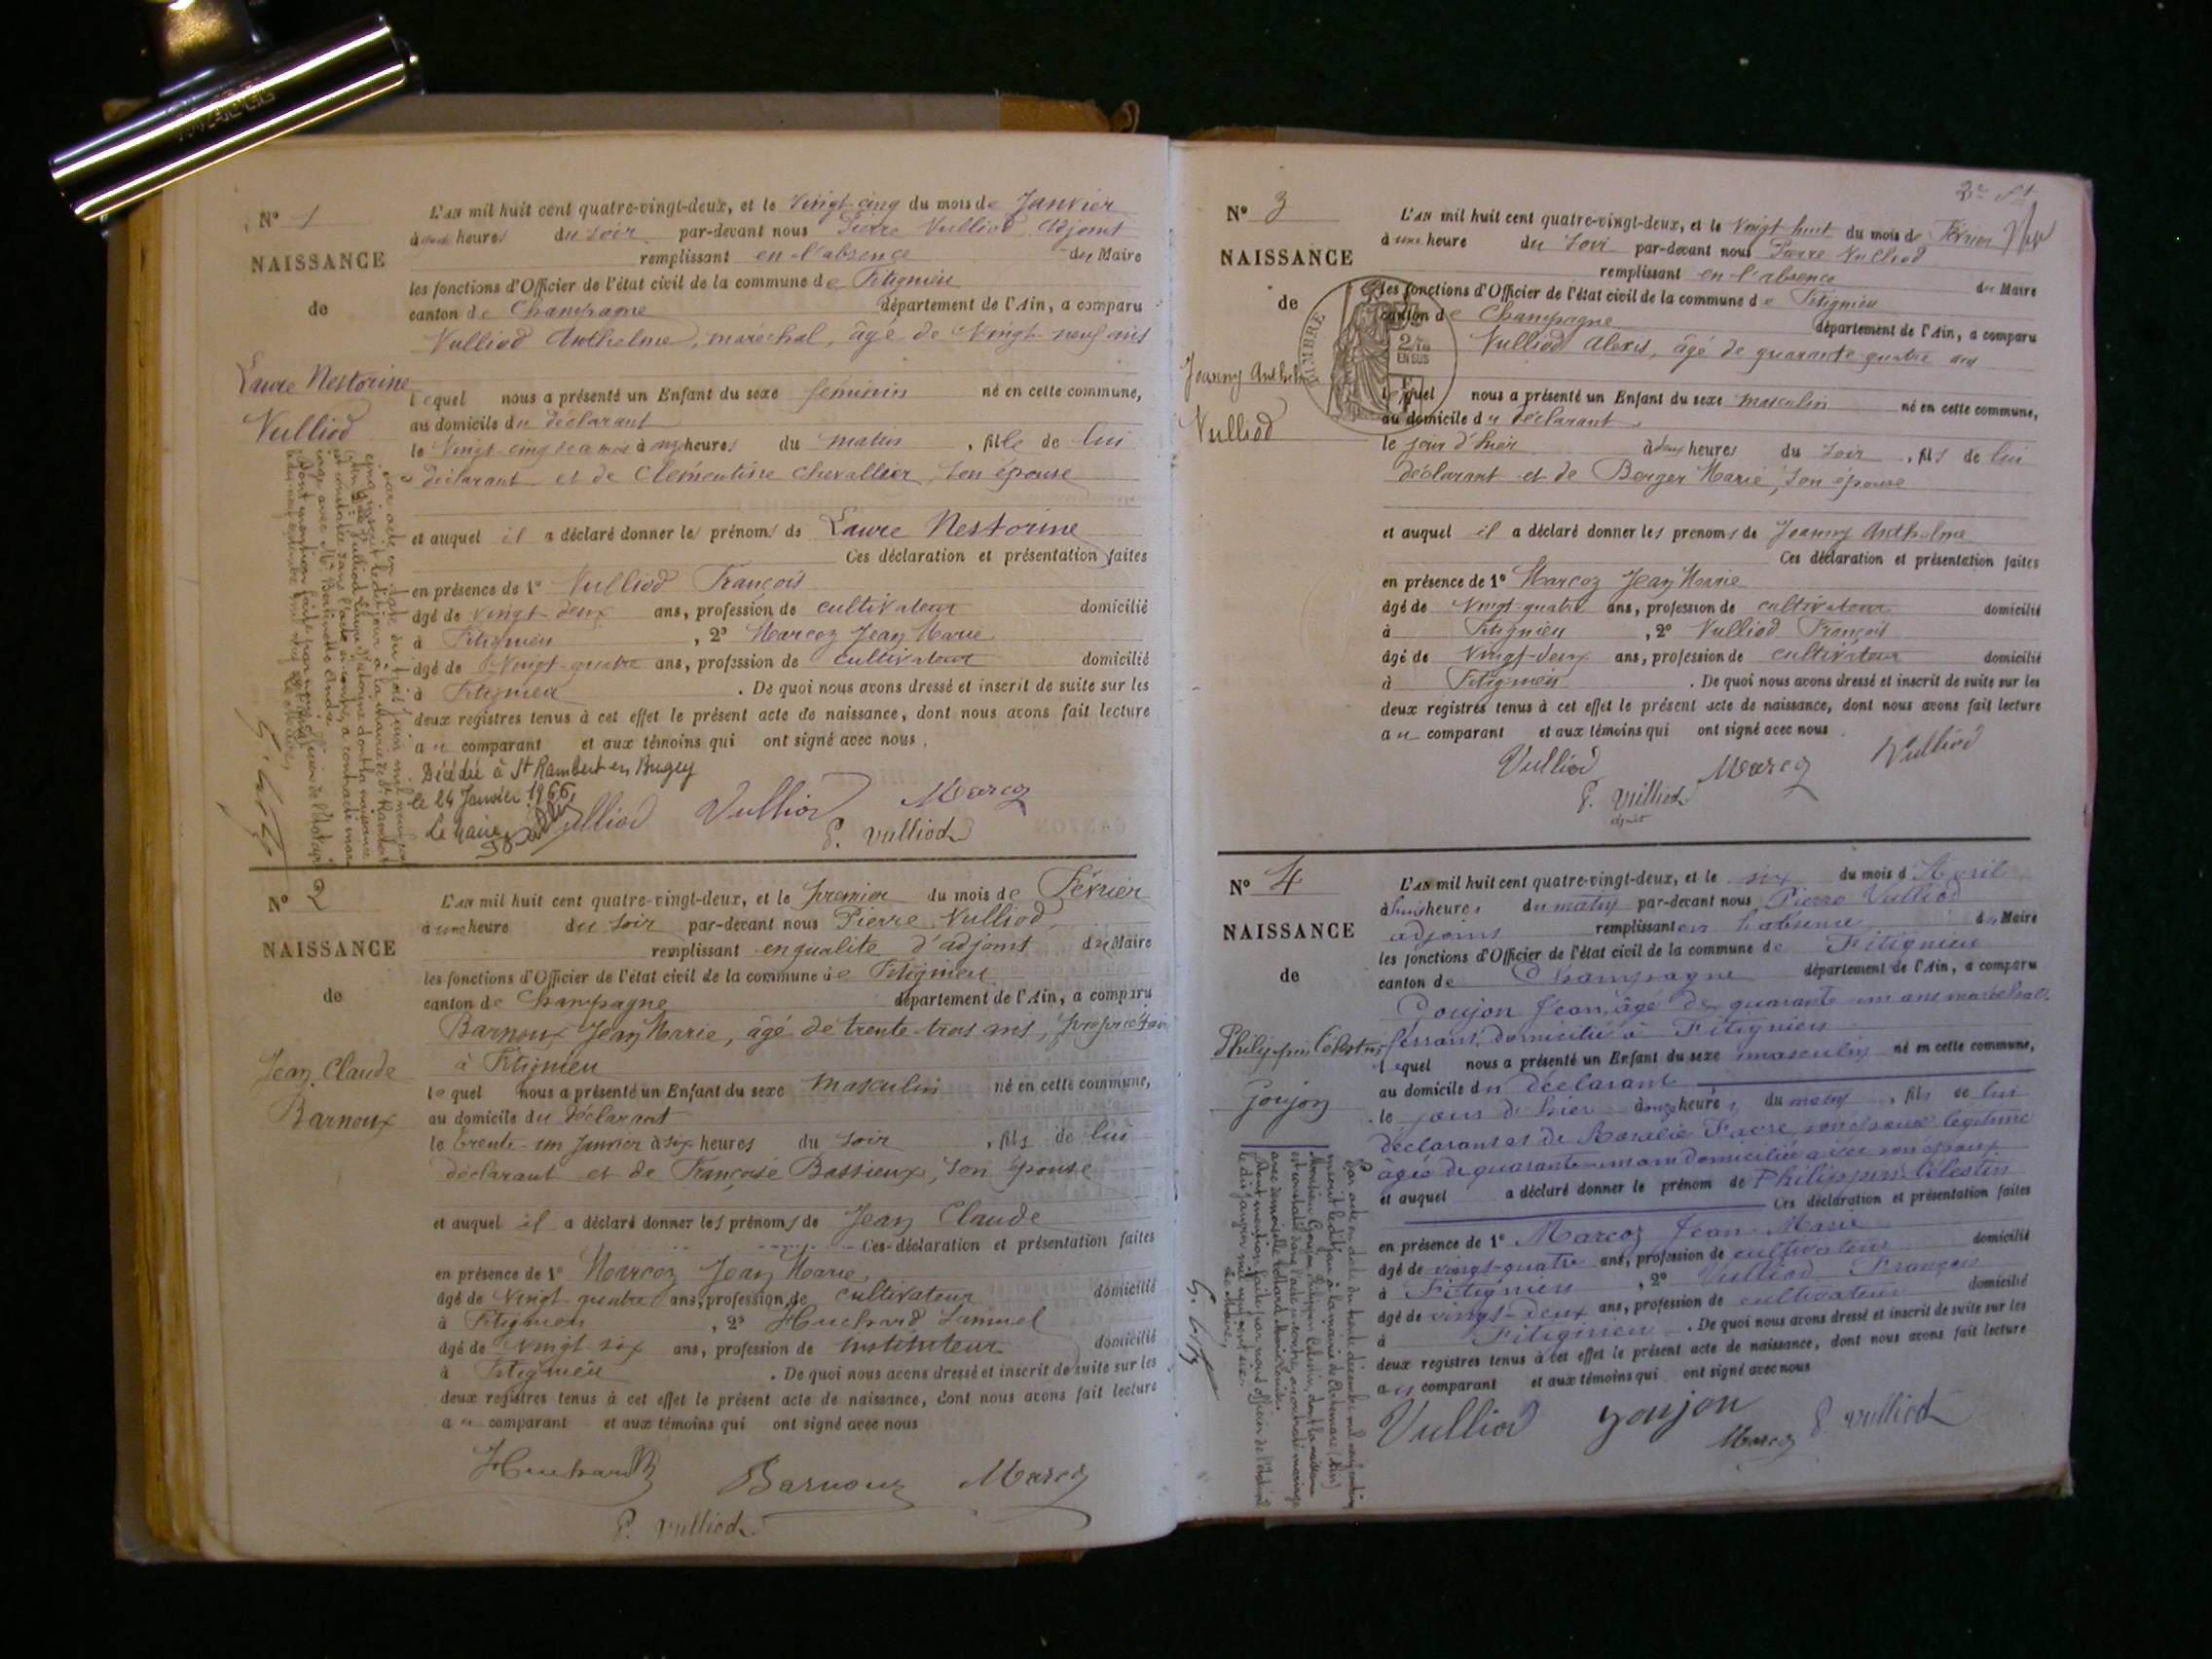 N° 1
NAISSANCE
de
Laure Nestorine
Vulliod
L'AN mil huit cent quatre-vingt-deux, et le Vingt-cinq du mois de Janvier
à heures du soir par-devant nous Pierre Vulliod Adjoint
remplissant en l'absence du Maire
les fonctions d'Officier de l'état civil de la commune de Fitignieu
canton de Champagne département de l'Ain, a comparu
Vulliod Anthelme, maréchal, âgé de Vingt-neuf ans
lequel nous a présenté un Enfant du sexe féminin né en cette commune,
au domicile du déclarant
le Vingt-cinq à onze heures du matin, fille de lui
déclarant et de Clémentine Chevallier, son épouse
et auquel il a déclaré donner les prénoms de Laure Nestorine
Ces déclaration et présentation faites
en présence de 1° Vulliod François
âgé de vingt-deux ans, profession de cultivateur domicilié
à Fitignieu, 2° Marcoz Jean Marie
âgé de Vingt-quatre ans, profession de cultivateur domicilié
à Fitignieu. De quoi nous avons dressé et inscrit de suite sur les
deux registres tenus à cet effet le présent acte de naissance, dont nous avons fait lecture
au comparant et aux témoins qui ont signé avec nous.
Décédée à St Rambert en Bugey
le 24 Janvier 1966
Le Maire
Vulliod Vulliod Marcoz
P. Vulliod
N° 2
NAISSANCE
de
Jean Claude
Barnoux
L'AN mil huit cent quatre-vingt-deux, et le premier du mois de Février
à une heure du soir par-devant nous Pierre Vulliod
remplissant en qualité d'adjoint du Maire
les fonctions d'Officier de l'état civil de la commune de Fitignieu
canton de Champagne département de l'Ain, a comparu
Barnoux Jean Marie, âgé de trente-trois ans, propriétaire
à Fitignieu
lequel nous a présenté un Enfant du sexe masculin né en cette commune,
au domicile du déclarant
le trente-un Janvier à six heures du soir, fils de lui
déclarant et de Françoise Bassieux, son épouse
et auquel il a déclaré donner les prénoms de Jean Claude
Ces déclaration et présentation faites
en présence de 1° Marcoz Jean Marie
âgé de Vingt-quatre ans, profession de cultivateur domicilié
à Fitignieu, 2° Huchard Samuel
âgé de Vingt-six ans, profession de instituteur domicilié
à Fitignieu. De quoi nous avons dressé et inscrit de suite sur les
deux registres tenus à cet effet le présent acte de naissance, dont nous avons fait lecture
au comparant et aux témoins qui ont signé avec nous
Huchard Barnoux Marcoz
P. Vulliod
N° 3
NAISSANCE
de
Joanny Anthelme
Vulliod
TIMBRE
EN SUS
L'AN mil huit cent quatre-vingt-deux, et le Vingt-huit du mois de Février
à une heure du Soir par-devant nous Pierre Vulliod
remplissant en l'absence du Maire
les fonctions d'Officier de l'état civil de la commune de Fitignieu
canton de Champagne département de l'Ain, a comparu
Vulliod Alexis, âgé de quarante-quatre ans
lequel nous a présenté un Enfant du sexe masculin né en cette commune,
au domicile du déclarant
le jour d'hier à deux heures du soir, fils de lui
déclarant et de Berger Marie, son épouse
et auquel il a déclaré donner les prénoms de Joanny Anthelme
Ces déclaration et présentation faites
en présence de 1° Marcoz Jean Marie
âgé de Vingt-quatre ans, profession de cultivateur domicilié
à Fitignieu, 2° Vulliod François
âgé de Vingt-deux ans, profession de cultivateur domicilié
à Fitignieu. De quoi nous avons dressé et inscrit de suite sur les
deux registres tenus à cet effet le présent acte de naissance, dont nous avons fait lecture
au comparant et aux témoins qui ont signé avec nous
Vulliod Marcoz Vulliod
P. Vulliod
adjoint
N° 4
NAISSANCE
de
Philippin Célestin
Goujon
L'AN mil huit cent quatre-vingt-deux, et le six du mois d'Avril
à huit heures du matin par-devant nous Pierre Vulliod
adjoint remplissant en l'absence du Maire
les fonctions d'Officier de l'état civil de la commune de Fitignieu
canton de Champagne département de l'Ain, a comparu
Goujon Jean, âgé de quarante un ans maréchal-
ferrant, domicilié à Fitignieu
lequel nous a présenté un Enfant du sexe masculin né en cette commune,
au domicile du déclarant
le jour d'hier à onze heures du matin, fils de lui
déclarant et de Rosalie Favre, son épouse légitime
âgée de quarante-un ans domiciliée avec son époux
et auquel a déclaré donner le prénom de Philippin Célestin
Ces déclaration et présentation faites
en présence de 1° Marcoz Jean Marie
âgé de vingt-quatre ans, profession de cultivateur domicilié
à Fitignieu, 2° Vulliod François
âgé de vingt-deux ans, profession de cultivateur domicilié
à Fitignieu. De quoi nous avons dressé et inscrit de suite sur les
deux registres tenus à cet effet le présent acte de naissance, dont nous avons fait lecture
au comparant et aux témoins qui ont signé avec nous
Vulliod Goujon Marcoz P. Vulliod